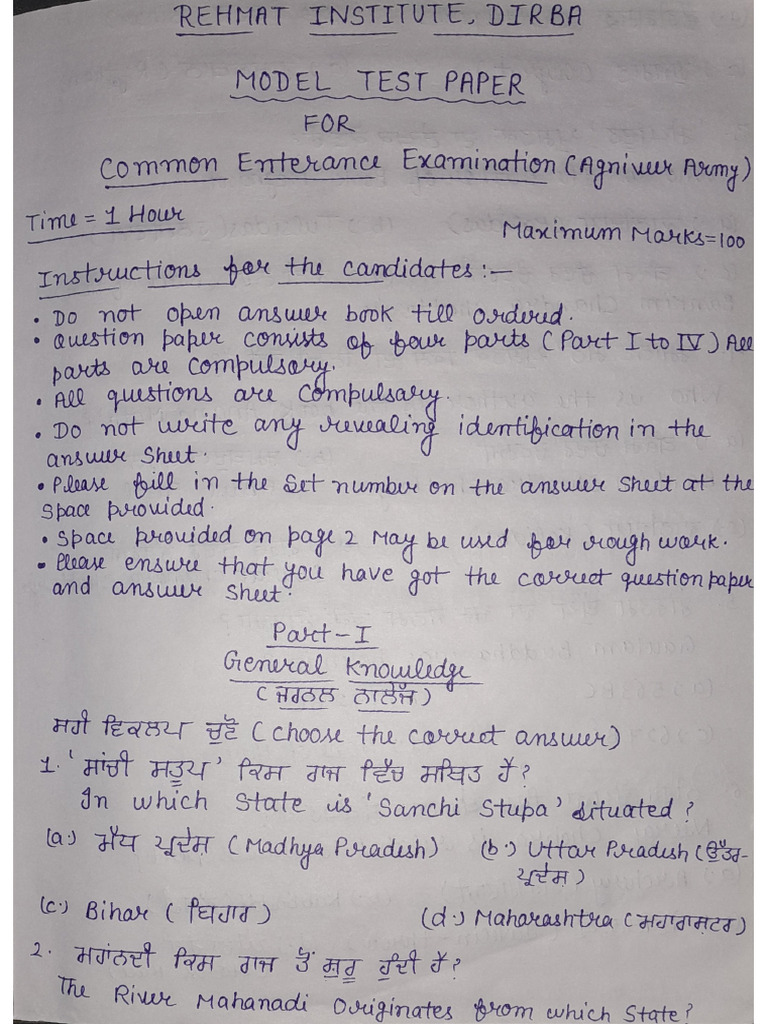 REHMAT INSTITUTE, DIRBA
MODEL TEST PAPER
FOR
Common Enterance Examination (Agniveer Army)
Time = 1 Hour
Maximum Marks=100
Instructions for the candidates :-
• Do not open answer book till ordered.
• Question paper consists of four parts (Part I to IV) All
parts are compulsory.
• All questions are compulsary.
• Do not write any revealing identification in the
answer sheet.
• Please fill in the set number on the answer sheet at the
space provided.
• Space provided on page 2 May be used for rough work.
• Please ensure that you have got the correct question paper
and answer sheet.
Part-I
General Knowledge
(ਜਰਨਲ ਨਾਲੇੱਜ)
ਸਹੀ ਵਿਕਲਪ ਚੁਣੋ (Choose the correct answer)
1. 'ਸਾਂਚੀ ਸਤੂਪ' ਕਿਸ ਰਾਜ ਵਿੱਚ ਸਥਿਤ ਹੈ?
In which State is 'Sanchi Stupa' situated?
(a.) ਮੱਧ ਪ੍ਰਦੇਸ਼ (Madhya Pradesh) (b.) Uttar Pradesh (ਉੱਤਰ-
ਪ੍ਰਦੇਸ਼)
(c.) Bihar (ਬਿਹਾਰ) (d.) Maharashtra (ਮਹਾਰਾਸ਼ਟਰ)
2. ਮਹਾਂਨਦੀ ਕਿਸ ਰਾਜ ਤੋਂ ਸ਼ੁਰੂ ਹੁੰਦੀ ਹੈ?
The River Mahanadi Originates from which State?